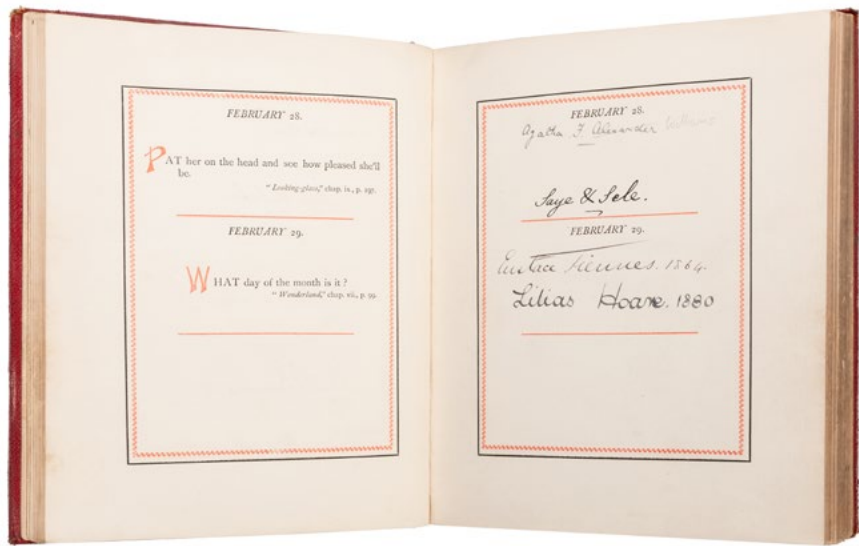 FEBRUARY 28.
PAT her on the head and see how pleased she'll
be.
"Looking-glass," chap. ix., p. 197.
FEBRUARY 29.
WHAT day of the month is it?
"Wonderland," chap. vii., p. 99.
FEBRUARY 28.
Agatha F. Alexander
Saye & Sele.
FEBRUARY 29.
Eustace Fiennes. 1864.
Lilias Hoare. 1880